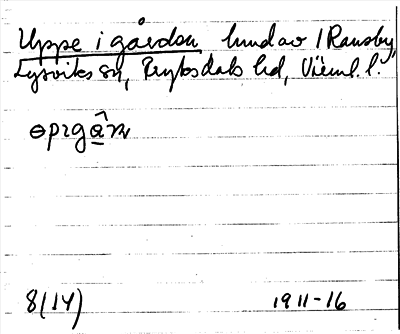 Uppe i gården hmd av i Ransby,
Lysviks sn, Fryksdals hd, Värml. l.
ɵpɪgân
8(14) 1911-16